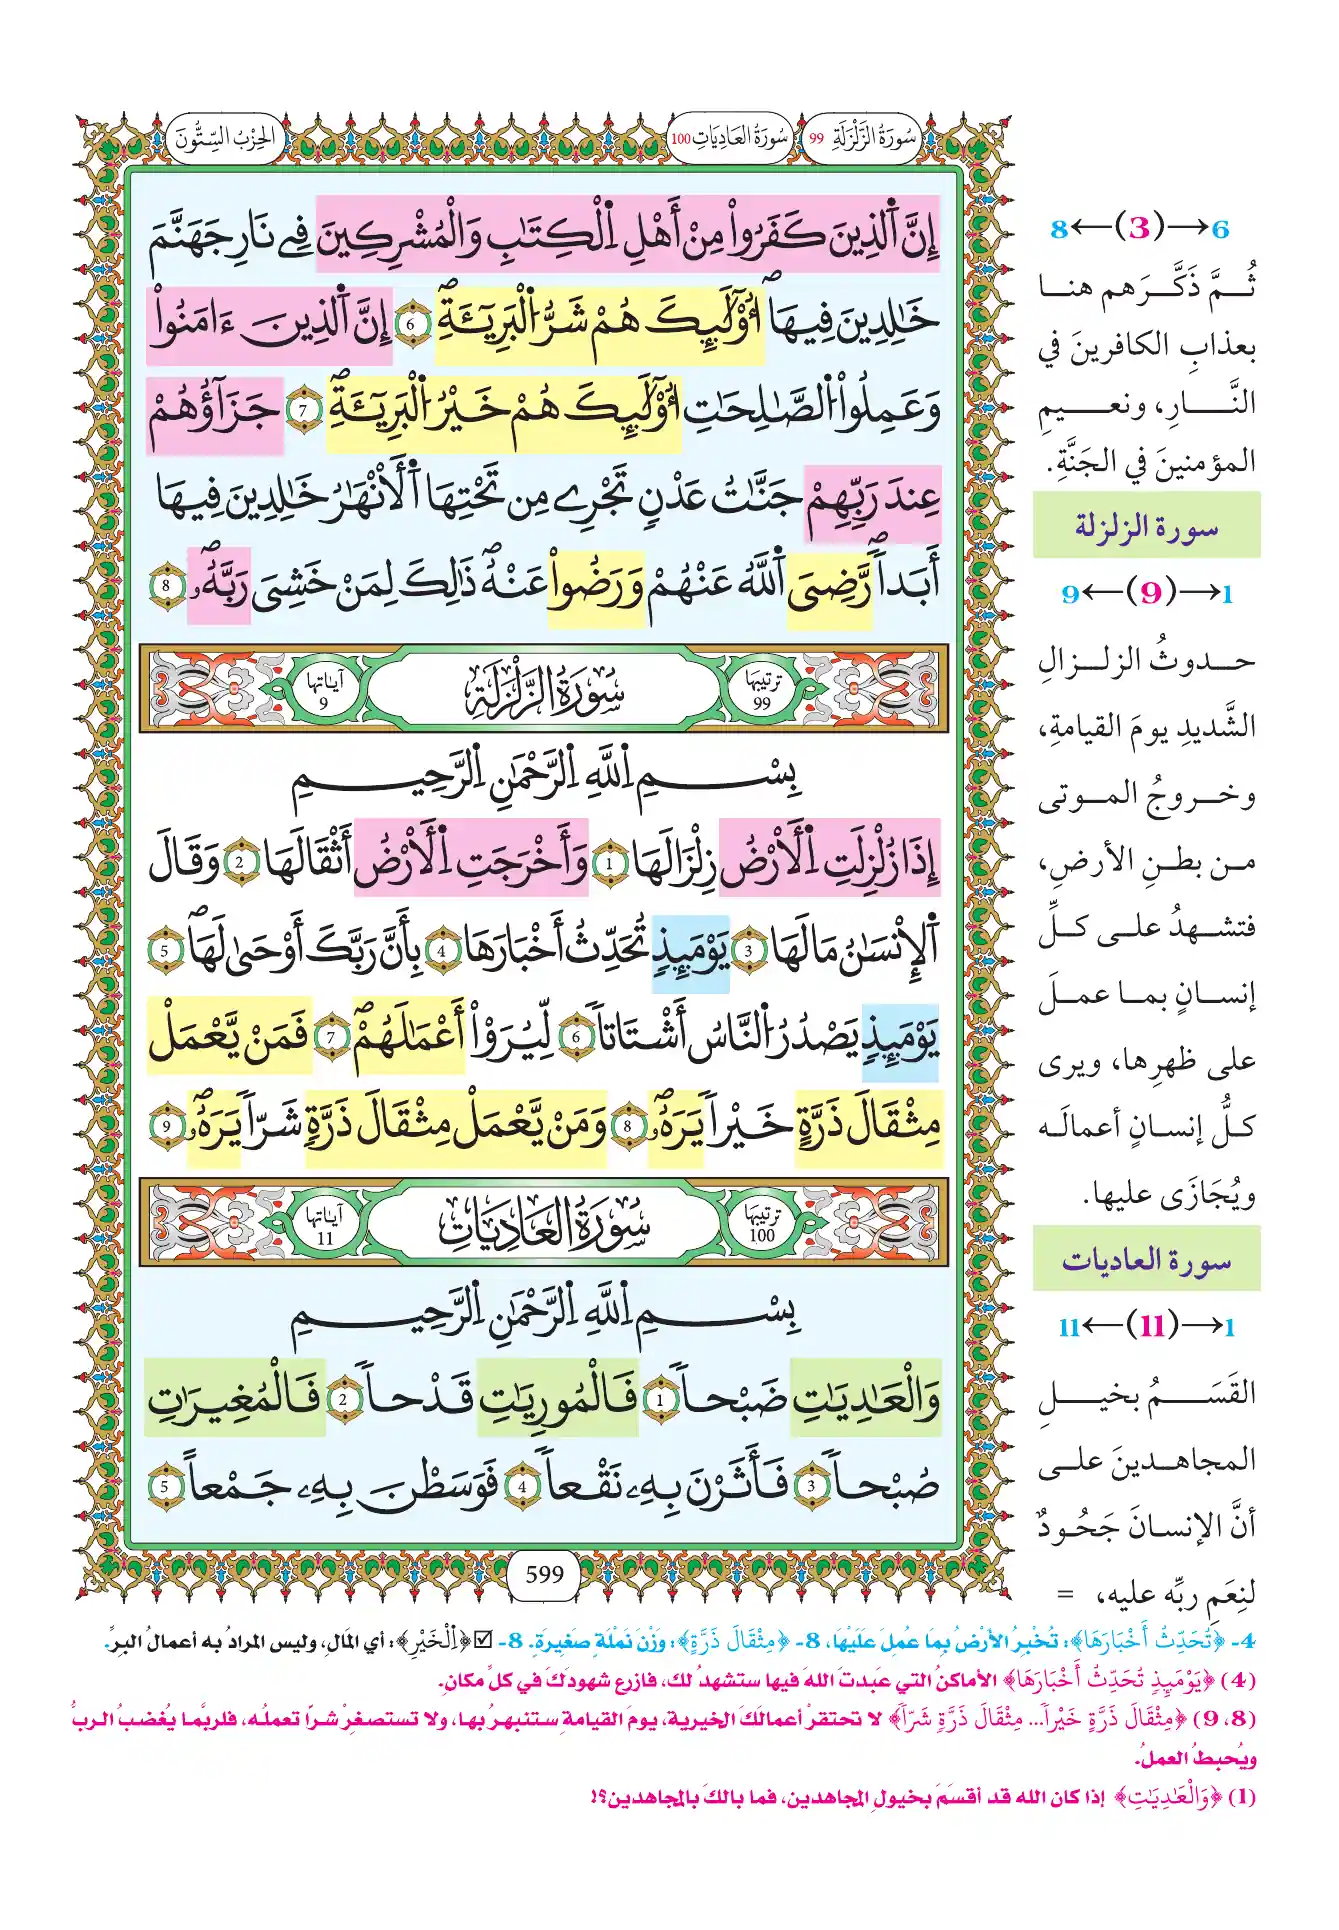 سُورَةُ الزَّلْزَلَةِ 99
سُورَةُ العَادِيَاتِ 100
الحِزْبُ السِّتُّونَ
إِنَّ اَ۬لذِينَ كَفَرُواْ مِنْ أَهْلِ اِ۬لْكِتَٰبِ وَالْمُشْرِكِينَ فِے نَارِ جَهَنَّمَ
خَٰلِدِينَ فِيهَآۖ أُوْلَٰٓئِكَ هُمْ شَرُّ اُ۬لْبَرِيٓـَٔةِۖ 6 إِنَّ اَ۬لذِينَ ءَامَنُواْ
وَعَمِلُواْ اُ۬لصَّٰلِحَٰتِ أُوْلَٰٓئِكَ هُمْ خَيْرُ اُ۬لْبَرِيٓـَٔةِۖ 7 جَزَآؤُهُمْ
عِندَ رَبِّهِمْ جَنَّٰتُ عَدْنٍ تَجْرِے مِن تَحْتِهَا اَ۬لْأَنْهَٰرُ خَٰلِدِينَ فِيهَا
أَبَداٗۖ رَّضِيَ اَ۬للَّهُ عَنْهُمْ وَرَضُواْ عَنْهُۖ ذَٰلِكَ لِمَنْ خَشِيَ رَبَّهُۥۖ 8
ترتيبها 99
سُورَةُ الزَّلْزَلَةِ
آياتها 9
بِسْمِ اِ۬للَّهِ اِ۬لرَّحْمَٰنِ اِ۬لرَّحِيمِ
إِذَا زُلْزِلَتِ اِ۬لْأَرْضُ زِلْزَالَهَا 1 وَأَخْرَجَتِ اِ۬لْأَرْضُ أَثْقَالَهَا 2 وَقَالَ
اَ۬لْإِنسَٰنُ مَا لَهَا 3 يَوْمَئِذٖ تُحَدِّثُ أَخْبَارَهَا 4 بِأَنَّ رَبَّكَ أَوْحَىٰ لَهَاۖ 5
يَوْمَئِذٖ يَصْدُرُ اُ۬لنَّاسُ أَشْتَاتاٗ 6 لِّيُرَوْاْ أَعْمَٰلَهُمْۖ 7 فَمَنْ يَّعْمَلْ
مِثْقَالَ ذَرَّةٍ خَيْراٗ يَرَهُۥۖ 8 وَمَنْ يَّعْمَلْ مِثْقَالَ ذَرَّةٖ شَرّاٗ يَرَهُۥۖ 9
ترتيبها 100
سُورَةُ العَادِيَاتِ
آياتها 11
بِسْمِ اِ۬للَّهِ اِ۬لرَّحْمَٰنِ اِ۬لرَّحِيمِ
وَالْعَٰدِيَٰتِ ضَبْحاٗ 1 فَالْمُورِيَٰتِ قَدْحاٗ 2 فَالْمُغِيرَٰتِ
صُبْحاٗ 3 فَأَثَرْنَ بِهِۦ نَقْعاٗ 4 فَوَسَطْنَ بِهِۦ جَمْعاً 5
599
6→(3)←8
ثُمَّ ذَكَّرَهم هنا
بعذابِ الكافرينَ في
النَّارِ، ونعيمِ
المؤمنينَ في الجَنَّةِ.
سورة الزلزلة
1→(9)←9
حدوثُ الزلزالِ
الشَّديدِ يومَ القيامةِ،
وخروجُ الموتى
من بطنِ الأرضِ،
فتشهدُ على كلِّ
إنسانٍ بما عملَ
على ظهرِها، ويرى
كلُّ إنسانٍ أعمالَه
ويُجَازَى عليها.
سورة العاديات
1→(11)←11
القَسَمُ بخيلِ
المجاهدينَ على
أنَّ الإنسانَ جَحُودٌ
لنِعَمِ ربِّه عليه، =
4- ﴿تُحَدِّثُ أَخْبَارَهَا﴾: تُخْبِرُ الأَرْضُ بِمَا عُمِلَ عَلَيْهَا، 8- ﴿مِثْقَالَ ذَرَّةٍ﴾: وَزْنَ نَمْلَةٍ صَغِيرَةٍ. 8- ☑﴿اِ۬لْخَيْرِ﴾: أي المَالِ، وليس المرادُ به أعمالُ البرِّ.
(4) ﴿يَوْمَئِذٖ تُحَدِّثُ أَخْبَارَهَا﴾ الأماكنُ التي عَبدتَ اللهَ فيها ستشهدُ لك، فازرع شهودَكَ في كلِّ مكانٍ.
(8، 9) ﴿مِثْقَالَ ذَرَّةٍ خَيْراٗ... مِثْقَالَ ذَرَّةٖ شَرّاٗ﴾ لا تحتقرْ أعمالكَ الخيرية، يومَ القيامةِ ستنبهرُ بها، ولا تستصغرْ شرًّا تعملُه، فلربَّما يُغضبُ الربَّ
ويُحبطُ العملُ.
(1) ﴿وَالْعَٰدِيَٰتِ﴾ إذا كان الله قد أقسَمَ بخيولِ المجاهدين، فما بالكَ بالمجاهدين؟!